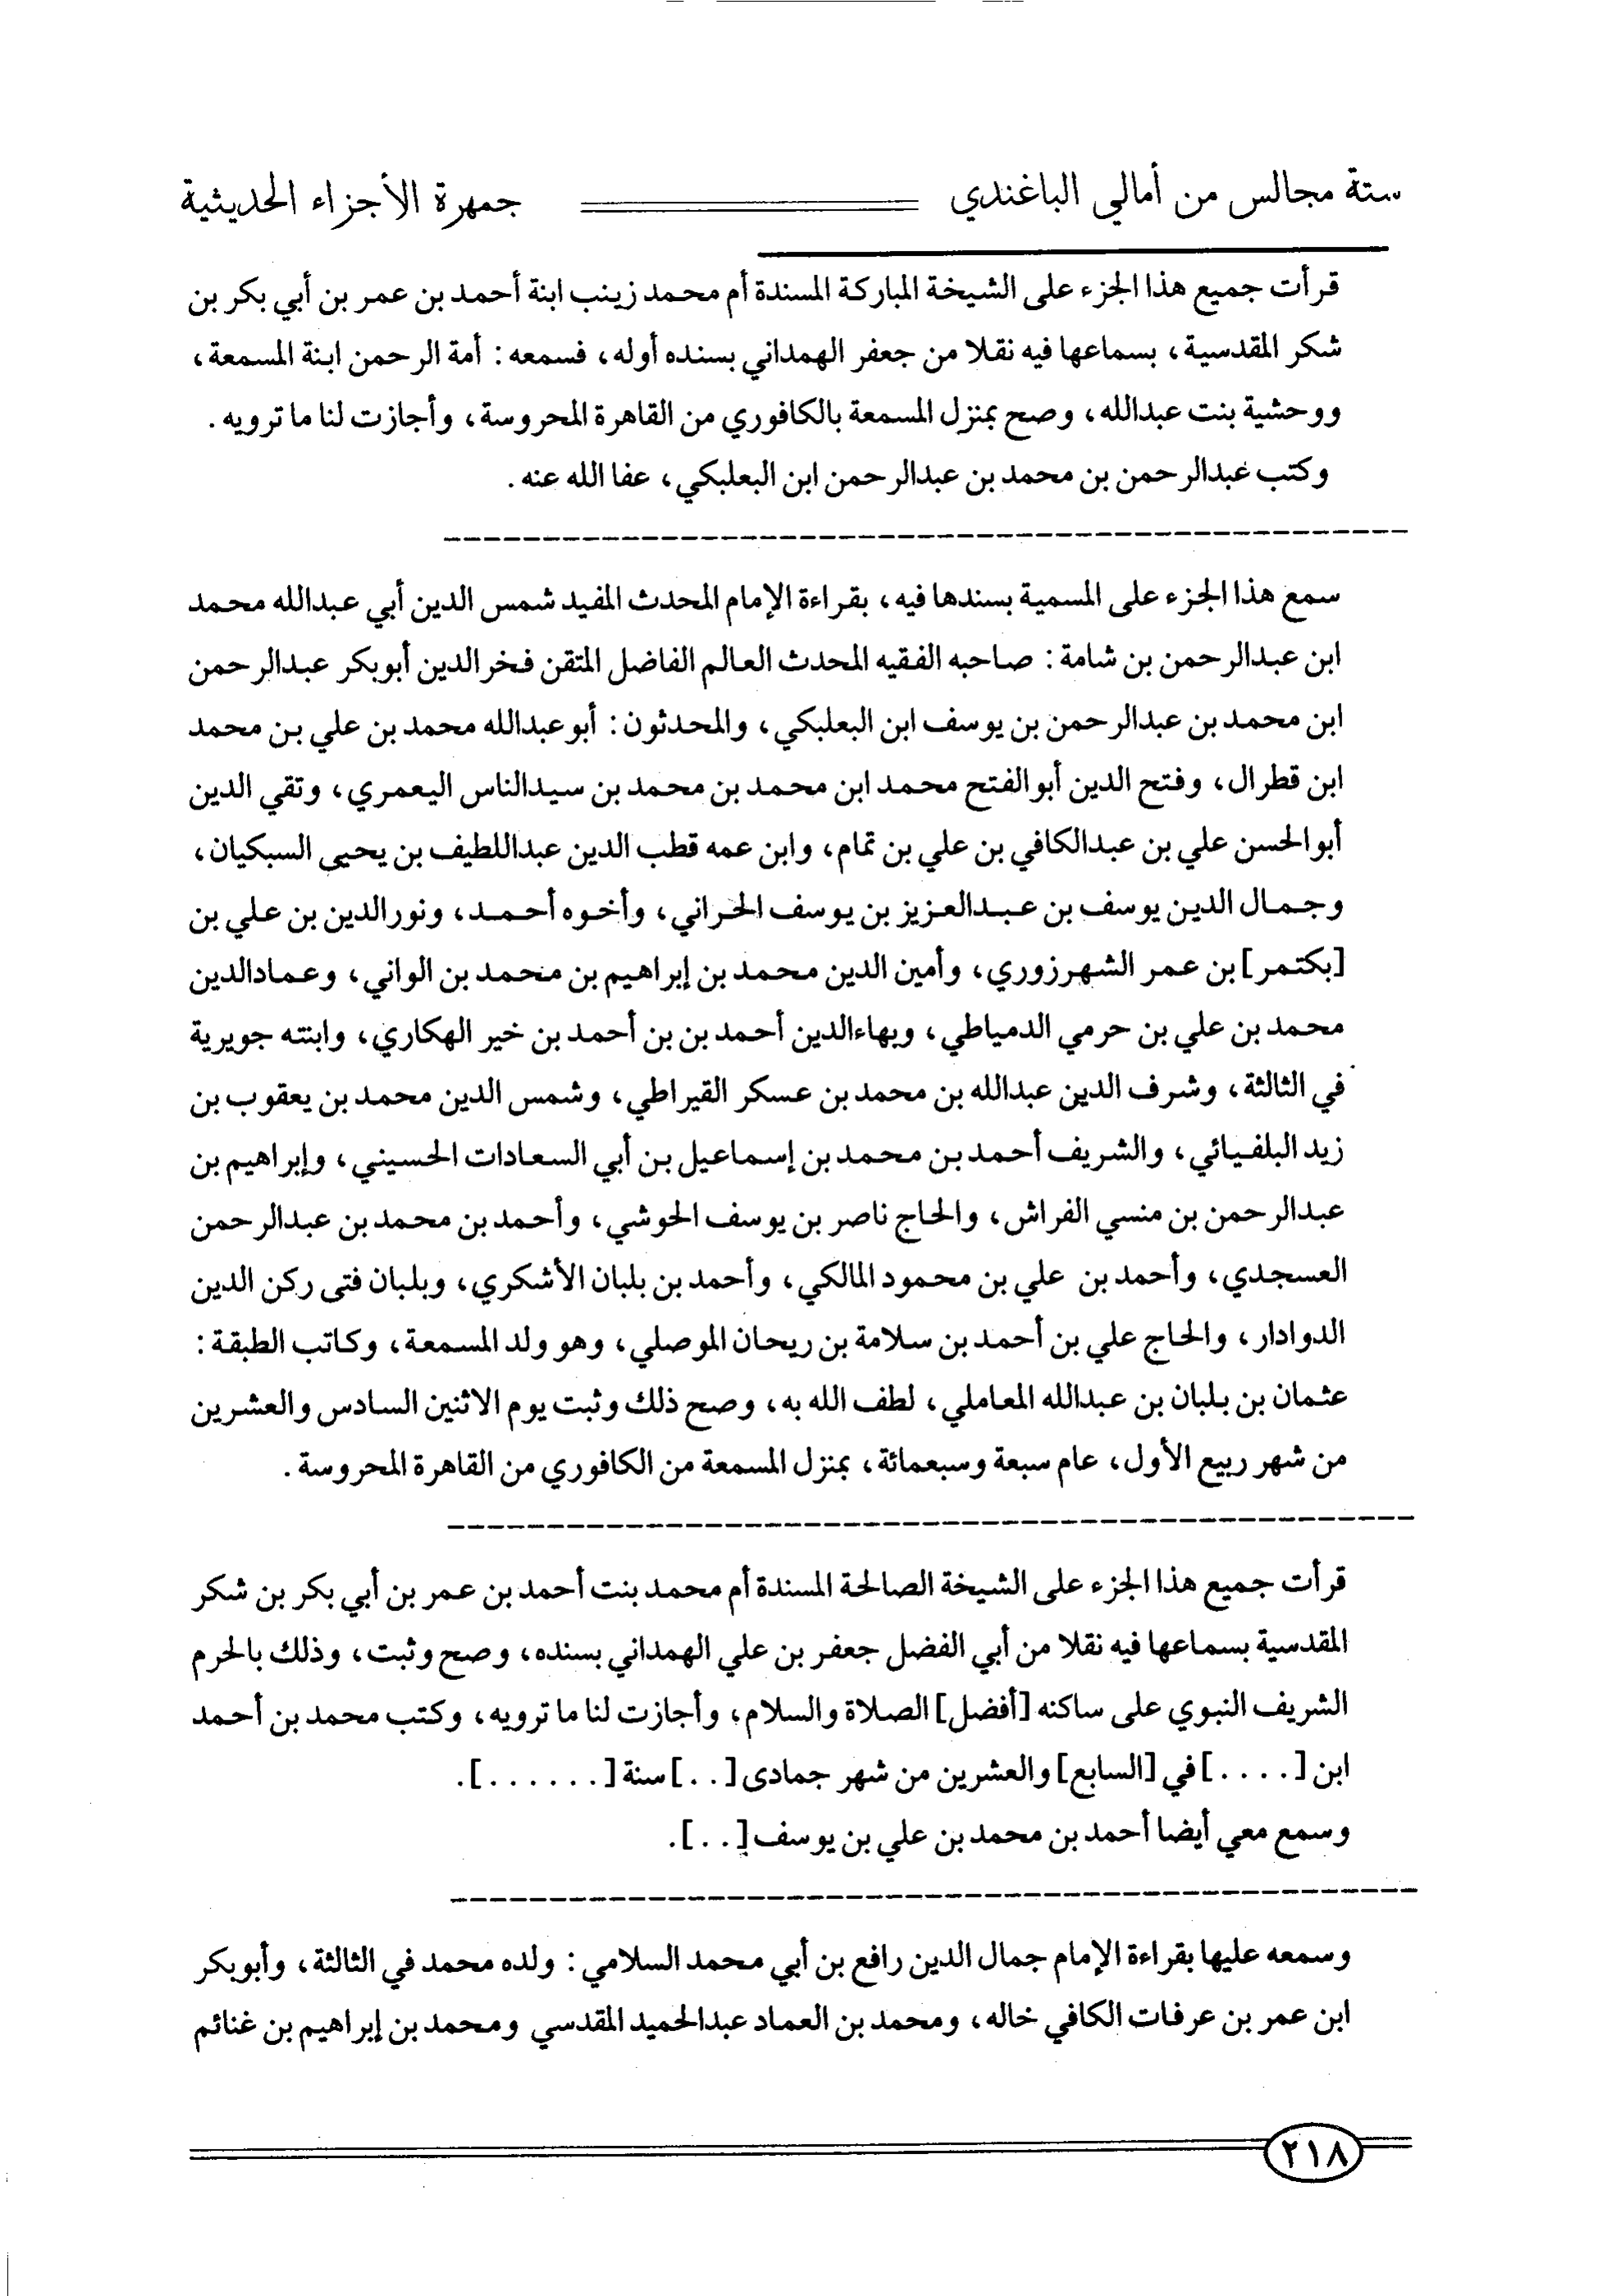 ستة مجالس من أمالي الباغندي جمهرة الأجزاء الحديثية
قرأت جميع هذا الجزء على الشيخة المباركة المسندة أم محمد زينب ابنة أحمد بن عمر بن أبي بكر بن
شكر المقدسية، بسماعها فيه نقلا من جعفر الهمداني بسنده أوله، فسمعه: أمة الرحمن ابنة المسمعة،
ووحشية بنت عبدالله، وصح بمنزل المسمعة بالكافوري من القاهرة المحروسة، وأجازت لنا ما ترويه.
وكتب عبدالرحمن بن محمد بن عبدالرحمن ابن البعلبكي، عفا الله عنه.
سمع هذا الجزء على المسمية بسندها فيه، بقراءة الإمام المحدث المفيد شمس الدين أبي عبدالله محمد
ابن عبدالرحمن بن شامة: صاحبه الفقيه المحدث العالم الفاضل المتقن فخرالدين أبوبكر عبدالرحمن
ابن محمد بن عبدالرحمن بن يوسف ابن البعلبكي، والمحدثون: أبو عبدالله محمد بن علي بن محمد
ابن قطرال، وفتح الدين أبوالفتح محمد ابن محمد بن محمد بن سيدالناس اليعمري، وتقي الدين
أبوالحسن علي بن عبدالكافي بن علي بن تمام، وابن عمه قطب الدين عبداللطيف بن يحيى السبكيان،
وجمال الدين يوسف بن عبدالعزيز بن يوسف الحراني، وأخوه أحمد، ونورالدين بن علي بن
[بكتمر] بن عمر الشهرزوري، وأمين الدين محمد بن إبراهيم بن محمد بن الواني، وعمادالدين
محمد بن علي بن حرمي الدمياطي، وبهاءالدين أحمد بن بن أحمد بن خير الهكاري، وابنته جويرية
في الثالثة، وشرف الدين عبدالله بن محمد بن عسكر القيراطي، وشمس الدين محمد بن يعقوب بن
زيد البلفيائي، والشريف أحمد بن محمد بن إسماعيل بن أبي السعادات الحسيني، وإبراهيم بن
عبدالرحمن بن منسي الفراش، والحاج ناصر بن يوسف الحوشي، وأحمد بن محمد بن عبدالرحمن
العسجدي، وأحمد بن علي بن محمود المالكي، وأحمد بن بلبان الأشكري، وبلبان فتى ركن الدين
الدوادار، والحاج علي بن أحمد بن سلامة بن ريحان الموصلي، وهو ولد المسمعة، وكاتب الطبقة:
عثمان بن بلبان بن عبدالله المعاملي، لطف الله به، وصح ذلك وثبت يوم الاثنين السادس والعشرين
من شهر ربيع الأول، عام سبعة وسبعمائة، بمنزل المسمعة من الكافوري من القاهرة المحروسة.
قرأت جميع هذا الجزء على الشيخة الصالحة المسندة أم محمد بنت أحمد بن عمر بن أبي بكر بن شكر
المقدسية بسماعها فيه نقلا من أبي الفضل جعفر بن علي الهمداني بسنده، وصح وثبت، وذلك بالحرم
الشريف النبوي على ساكنه [أفضل] الصلاة والسلام، وأجازت لنا ما ترويه، وكتب محمد بن أحمد
ابن [....] في [السابع] والعشرين من شهر جمادى [..] سنة [......].
وسمع معي أيضا أحمد بن محمد بن علي بن يوسف [..].
وسمعه عليها بقراءة الإمام جمال الدين رافع بن أبي محمد السلامي: ولده محمد في الثالثة، وأبوبكر
ابن عمر بن عرفات الكافي خاله، ومحمد بن العماد عبدالحميد المقدسي ومحمد بن إبراهيم بن غنائم
٢١٨